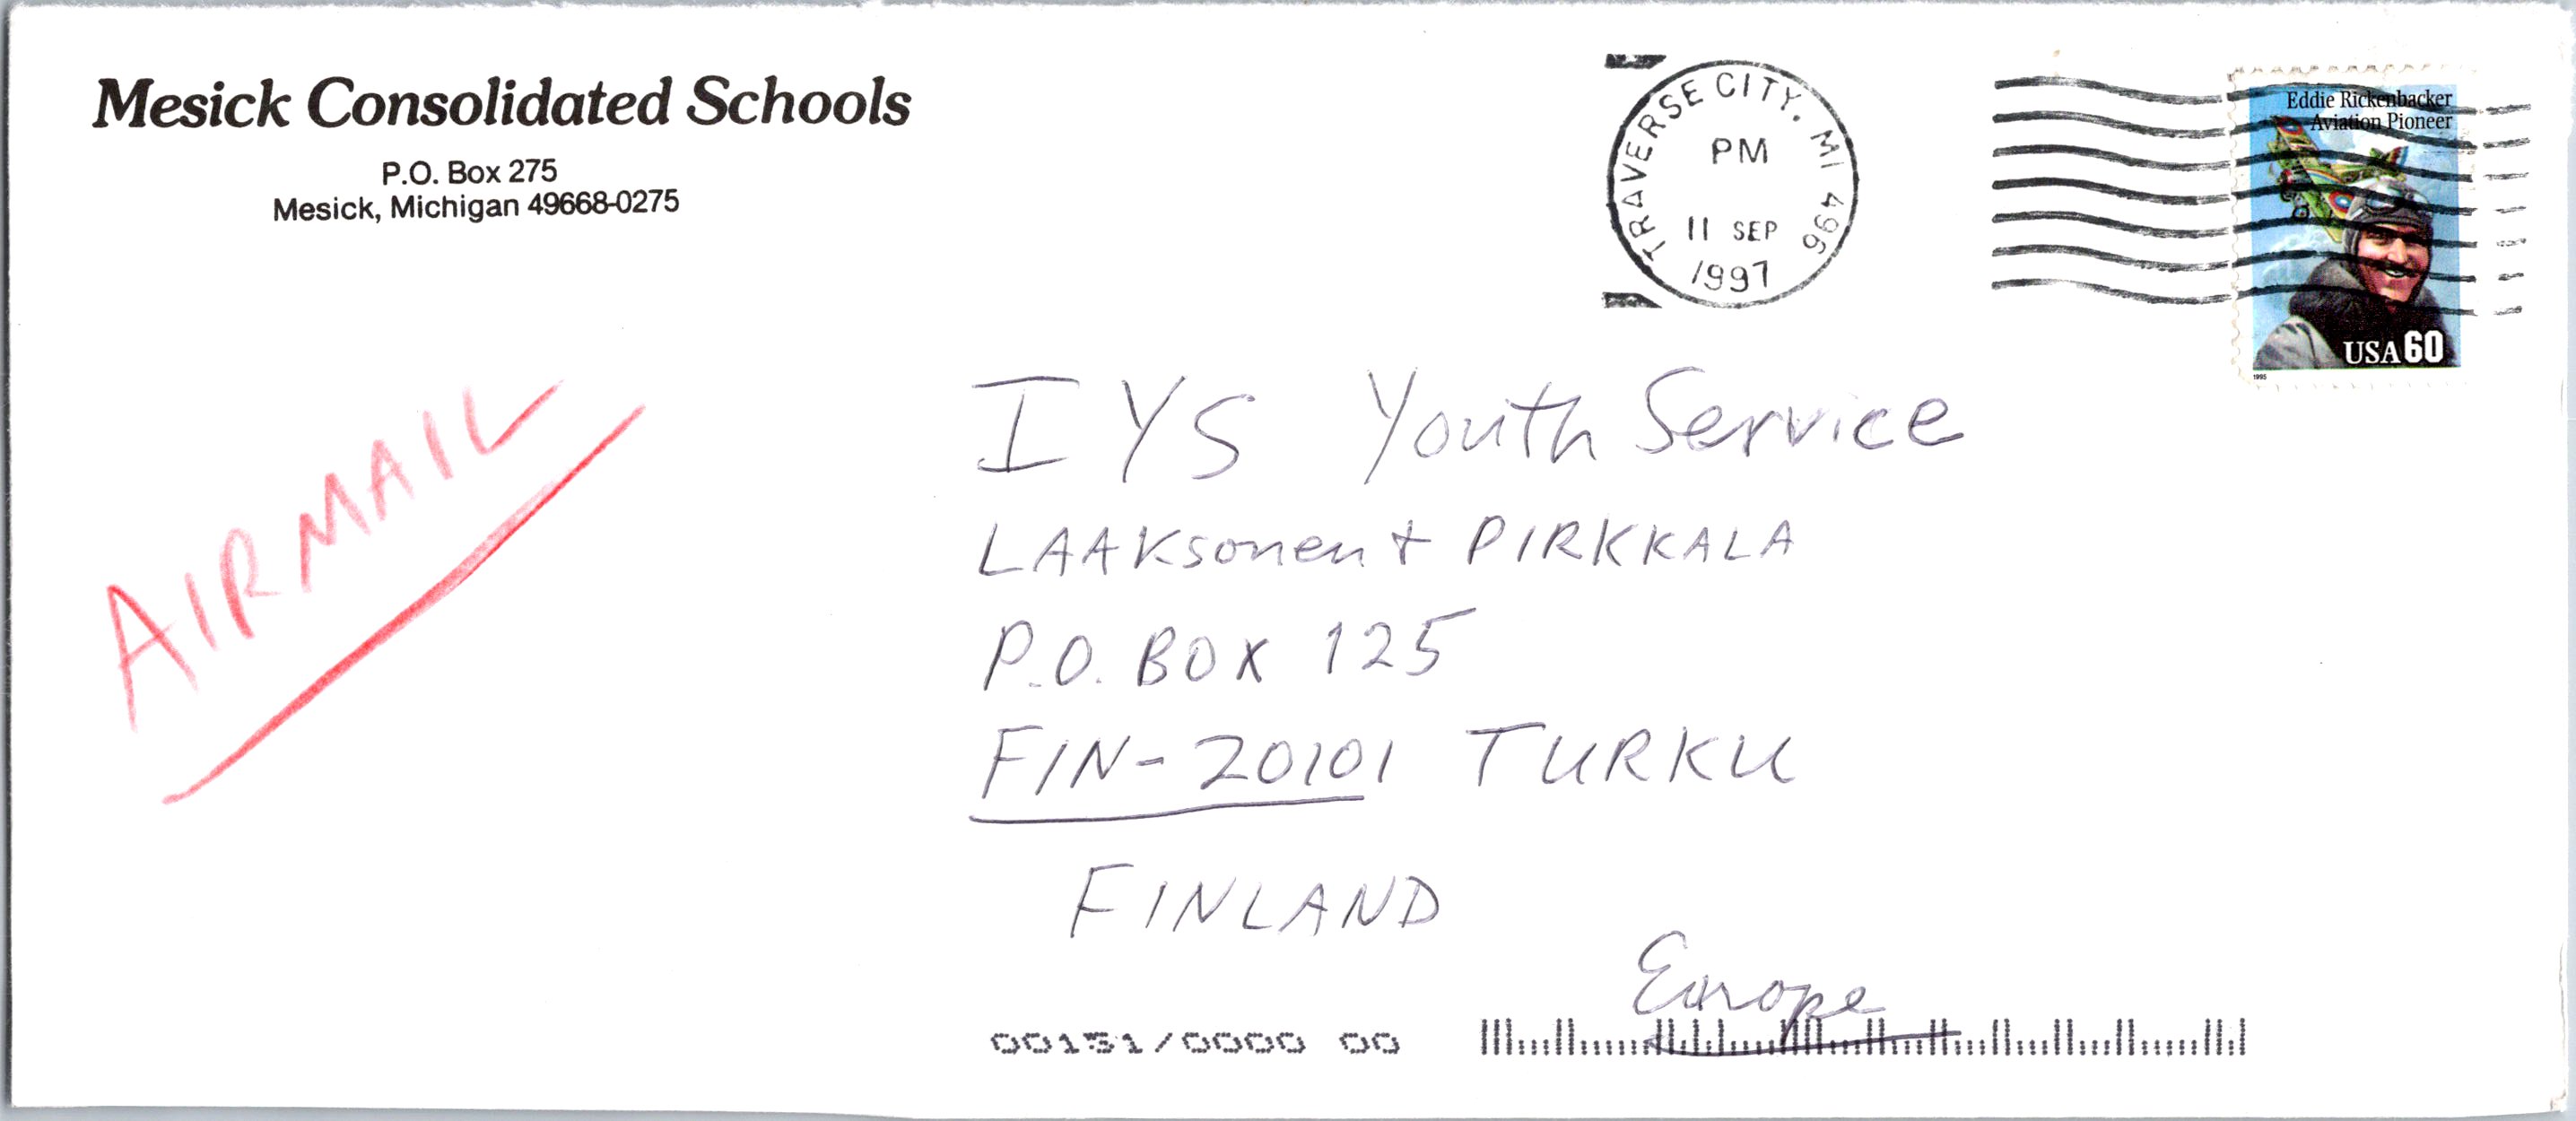 Mesick Consolidated Schools
P.O. Box 275
Mesick, Michigan 49668-0275
TRAVERSE CITY, MI 496
PM
11 SEP
1997
Eddie Rickenbacker
Aviation Pioneer
USA 60
1995
AIRMAIL
IYS Youth Service
LAAKsonen + PIRKKALA
P.O. BOX 125
FIN-20101 TURKU
FINLAND
Europe
00151/0000 00